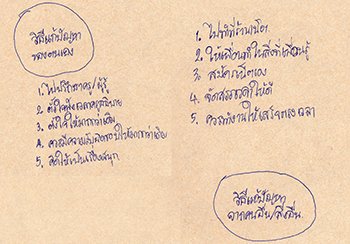 วิธีแก้ปัญหา
ของตนเอง
1. ไปปรึกษาครู/ผู้รู้
2. ตั้งใจฟังเวลาครูอธิบาย
3. ตั้งใจให้มากกว่าเดิม
4. ควรมีความรับผิดชอบให้มากกว่าเดิม
5. คิดให้เป็นเรื่องสนุก
1. ไปทำที่ร้านเน็ต
2. ให้เพื่อนทำในสิ่งที่เพื่อนรู้
3. สมัครเน็ตเอง
4. จัดสรรเวลาให้ดี
5. ควรทำงานให้เสร็จตรงเวลา
วิธีแก้ปัญหา
จากคนอื่น/สิ่งอื่น